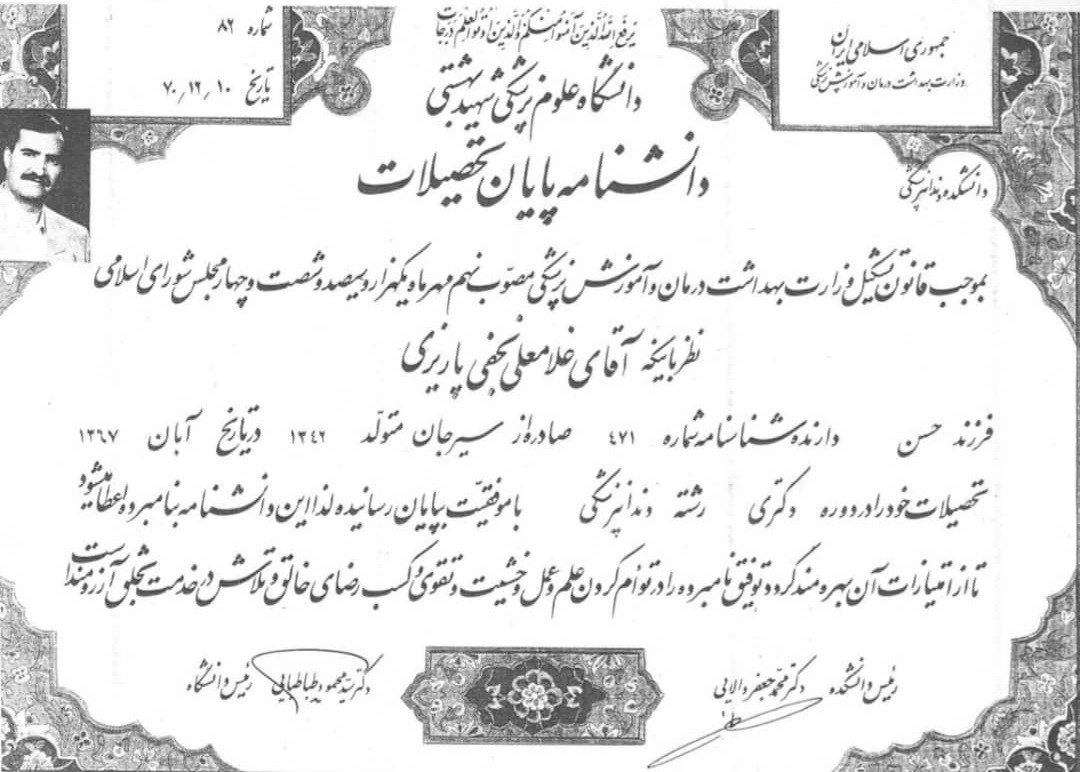 جمهوری اسلامی ایران
وزارت بهداشت درمان و آموزش پزشکی
یرفع الله الذین آمنوا منکم والذین اوتوا العلم درجات
شماره ۸۲
تاریخ ۱۰/۱۲/۷۰
دانشگاه علوم پزشکی شهید بهشتی
دانشنامه پایان تحصیلات
دانشکده دندانپزشکی
بموجب قانون تشکیل وزارت بهداشت درمان و آموزش پزشکی مصوّب نهم مهر ماه یکهزار و سیصد و شصت و چهار مجلس شورای اسلامی
نظر باینکه آقای غلامعلی نجفی پاریزی
فرزند حسن دارنده شناسنامه شماره ٤٧١ صادره از سیرجان متولّد ١٣٤٢ در تاریخ آبان ١٣٦٧
تحصیلات خود را در دوره دکتری رشته دندانپزشکی با موفقیّت بپایان رسانیده لذا این دانشنامه بنامبرده اعطا میشود
تا از امتیازات آن بهره مند گردد توفیق نامبرده را در توأم کردن علم و عمل و خشیت و تقوی و کسب رضای خالق و تلاش در خدمت بخلق آرزومند است
رئیس دانشکده دکتر محمّد جعفر والایی
دکتر سید محمود طباطبایی رئیس دانشگاه